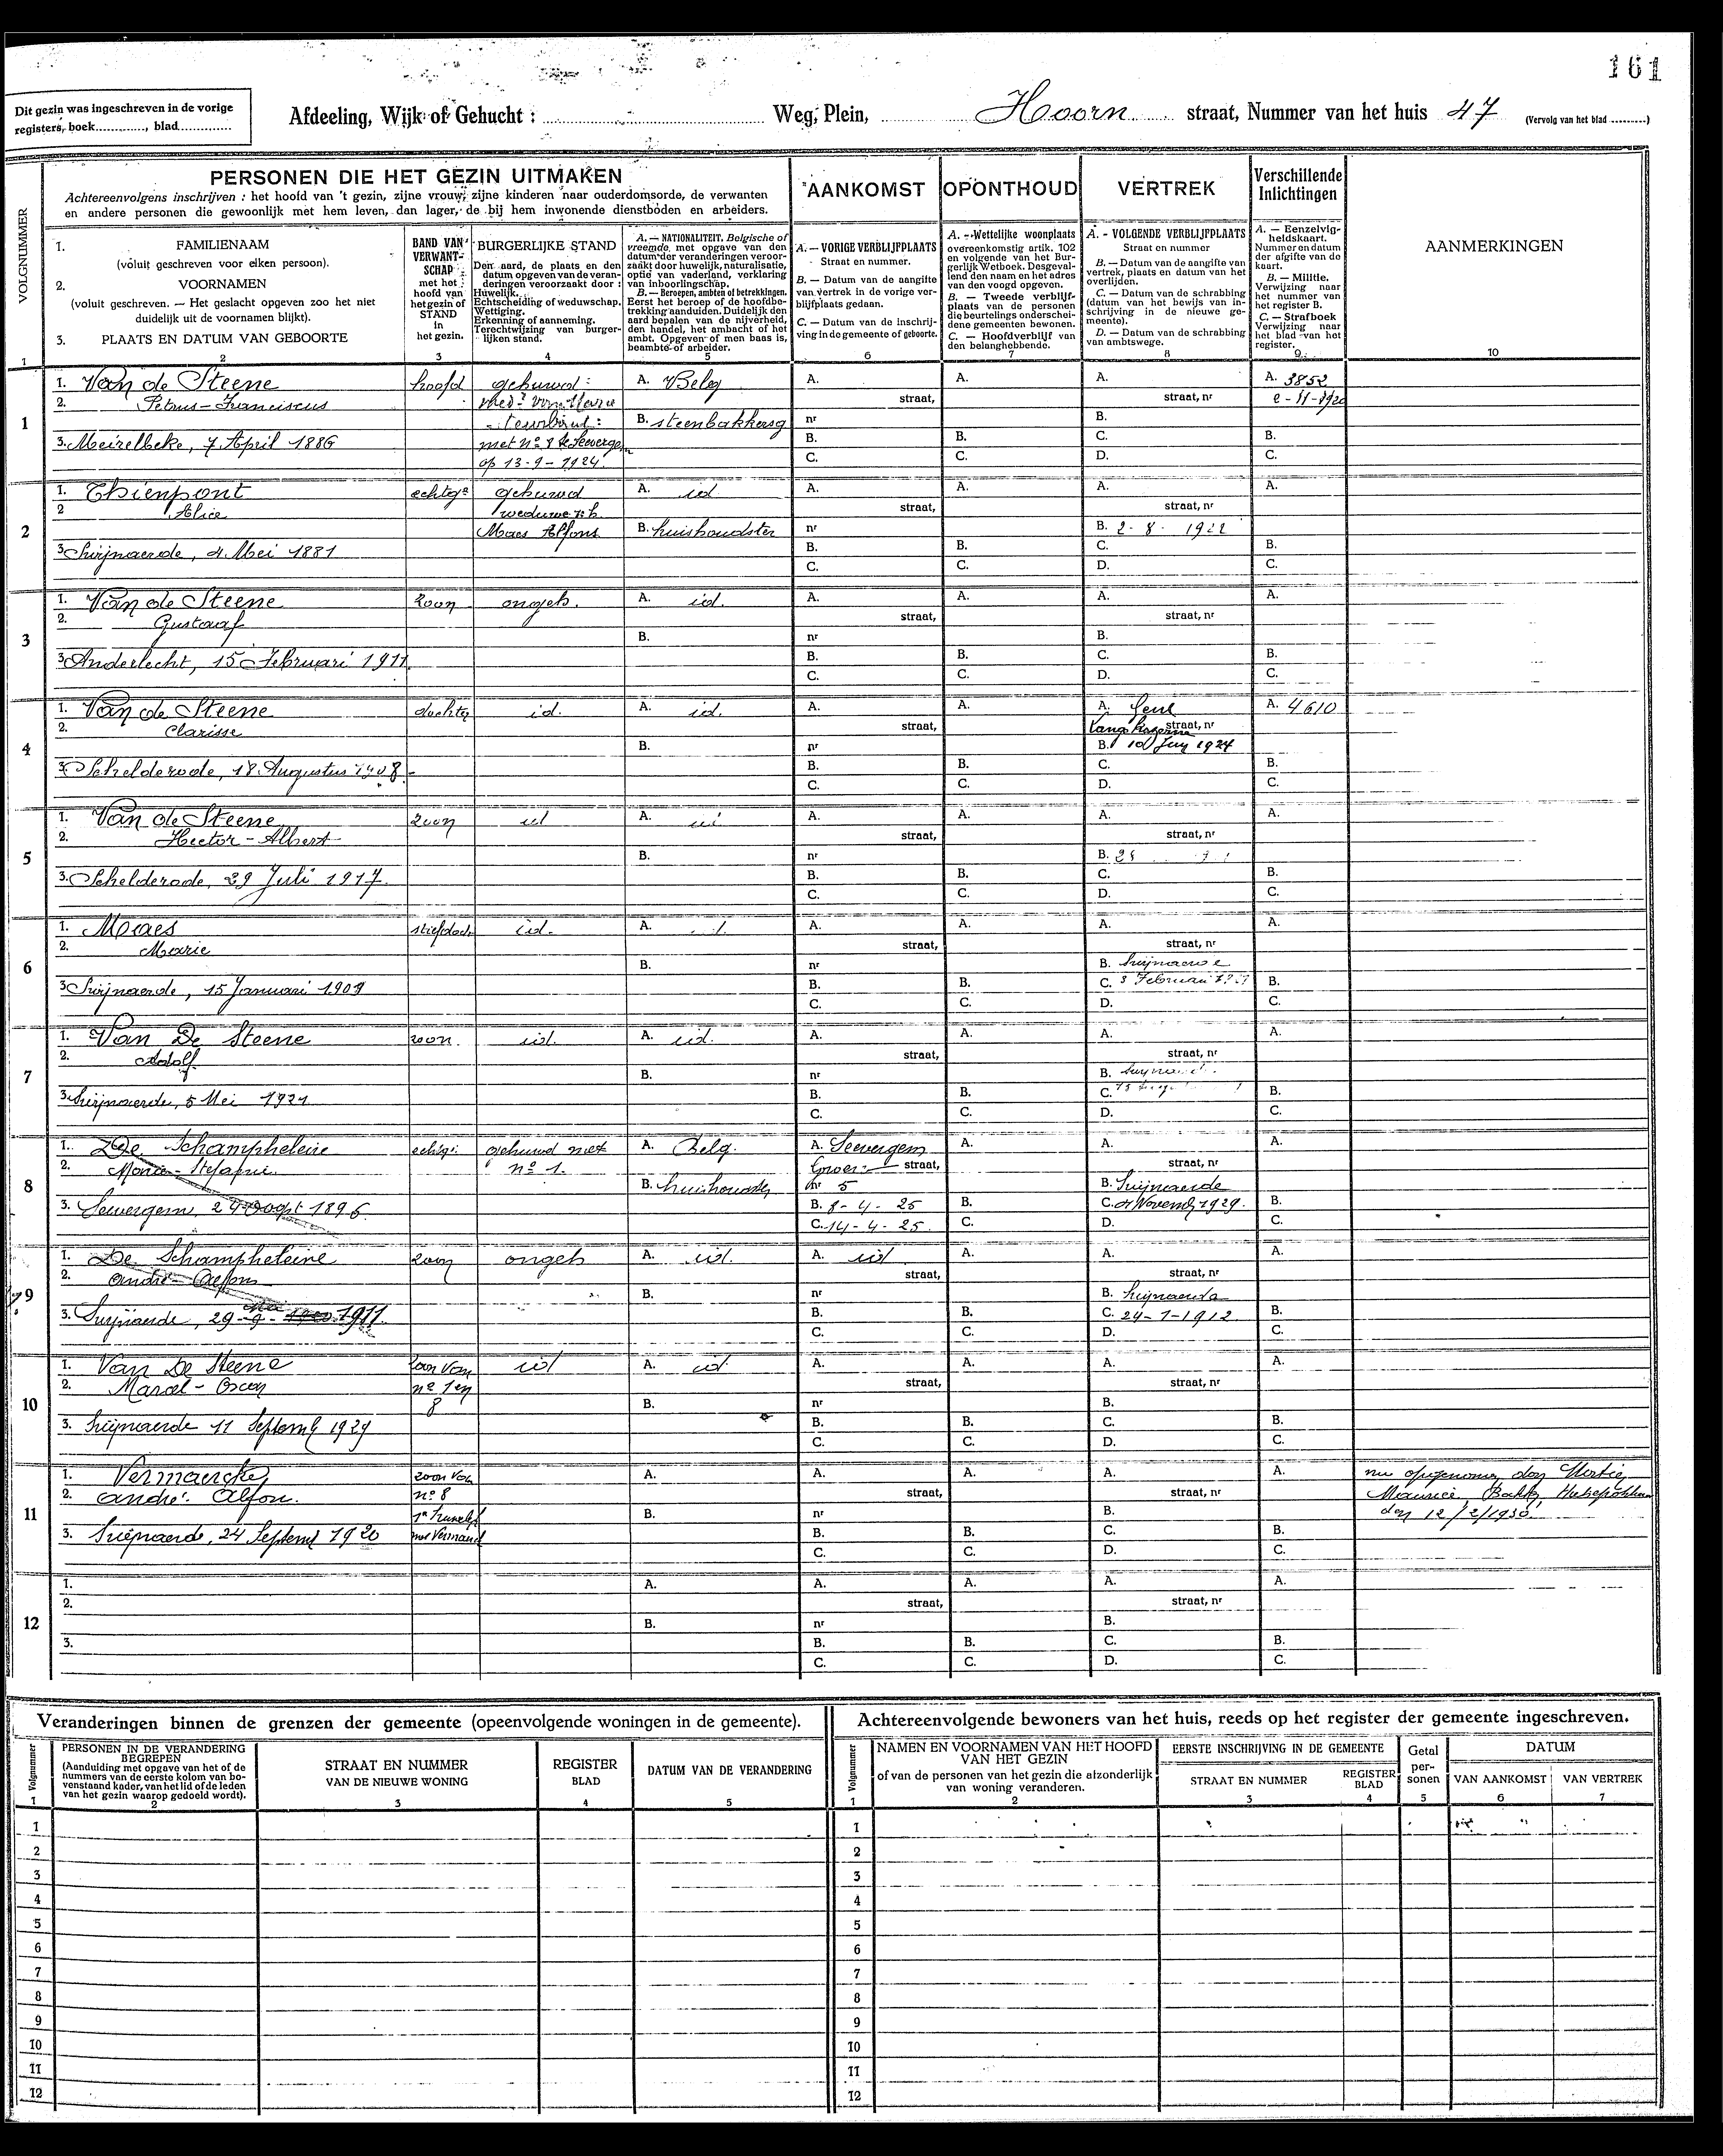 161
Dit gezin was ingeschreven in de vorige
registers, boek............., blad..............
Afdeeling, Wijk of Gehucht : Weg, Plein, Hoorn straat, Nummer van het huis 47 (Vervolg van het blad .........)
VOLGNUMMER
PERSONEN DIE HET GEZIN UITMAKEN
Achtereenvolgens inschrijven : het hoofd van 't gezin, zijne vrouw, zijne kinderen naar ouderdomsorde, de verwanten
en andere personen die gewoonlijk met hem leven, dan lager, de bij hem inwonende dienstboden en arbeiders.
AANKOMST
OPONTHOUD
VERTREK
Verschillende
Inlichtingen
1. FAMILIENAAM
(voluit geschreven voor elken persoon).
2. VOORNAMEN
(voluit geschreven. — Het geslacht opgeven zoo het niet
duidelijk uit de voornamen blijkt).
3. PLAATS EN DATUM VAN GEBOORTE
BAND VAN
VERWANT-
SCHAP
met het
hoofd van
het gezin of
STAND
in
het gezin.
BURGERLIJKE STAND
Den aard, de plaats en den
datum opgeven van de veran-
deringen veroorzaakt door :
Huwelijk.
Echtscheiding of weduwschap.
Wettiging.
Erkenning of aanneming.
Terechtwijzing van burger-
lijken stand.
A. — NATIONALITEIT, Belgische of
vreemde, met opgave van den
datum der veranderingen veroor-
zaakt door huwelijk, naturalisatie,
optie van vaderland, verklaring
van inboorlingschap.
B. — Beroepen, ambten of betrekkingen.
Eerst het beroep of de hoofdbe-
trekking aanduiden. Duidelijk den
aard bepalen van de nijverheid,
den handel, het ambacht of het
ambt. Opgeven of men baas is,
beambte of arbeider.
A. — VORIGE VERBLIJFPLAATS
Straat en nummer.
B. — Datum van de aangifte
van vertrek in de vorige ver-
blijfplaats gedaan.
C. — Datum van de inschrij-
ving in de gemeente of geboorte.
A. - Wettelijke woonplaats
overeenkomstig artik. 102
en volgende van het Bur-
gerlijk Wetboek. Desgeval-
lend den naam en het adres
van den voogd opgeven.
B. — Tweede verblijf-
plaats van de personen
die beurtelings onderschei-
dene gemeenten bewonen.
C. — Hoofdverblijf van
den belanghebbende.
A. - VOLGENDE VERBLIJFPLAATS
Straat en nummer
B. — Datum van de aangifte van
vertrek, plaats en datum van het
overlijden.
C. — Datum van de schrabbing
(datum van het bewijs van in-
schrijving in de nieuwe ge-
meente).
D. — Datum van de schrabbing
van ambtswege.
A. — Eenzelvig-
heidskaart.
Nummer en datum
der afgifte van de
kaart.
B. — Militie.
Verwijzing naar
het nummer van
het register B.
C. — Strafboek
Verwijzing naar
het blad van het
register.
AANMERKINGEN
1 2 3 4 5 6 7 8 9 10
1
1. Van de Steene hoofd gehuwd: A. Belg A. A. A. A. 3852
2. Petrus-Franciscus straat, straat, nr
B. steenbakkersg nr B.
3. Meirelbeke, 7 April 1886 met no 8 te Seevergem B. B. C. B.
op 13-9-1924. C. C. D. C.
2
1. Thienpont gehuwd A. id A. A. A. A.
2 Alice straat, straat, nr
Maes Alfons B. huishoudster nr B. 2-8-1922
3 Swijnaerde, 4 Mei 1881 B. B. C. B.
C. C. D. C.
3
1. Van de Steene zoon ongeh. A. id. A. A. A. A.
2. Gustaaf straat, straat, nr
B. nr B.
3 Anderlecht, 15 Februari 1911 B. B. C. B.
C. C. D. C.
4
1. Van de Steene dochter id. A. id. A. A. A. A. 4610
2. Clarisse straat, straat, nr
B. nr B. 1924
3. Schelderode, 18 Augustus 1908 B. B. C. B.
C. C. D. C.
5
1. Van de Steene zoon id A. id A. A. A. A.
2. Hector-Albert straat, straat, nr
B. nr B.
3. Schelderode, 29 Juli 1917. B. B. C. B.
C. C. D. C.
6
1. Maes stiefdoch. id. A. A. A. A. A.
2. Marie straat, straat, nr
B. nr B. Swijnaerde
3 Swijnaerde, 15 Januari 1909 B. B. C. 3 Februari B.
C. C. D. C.
7
1. Van De Steene zoon. id. A. id. A. A. A. A.
2. Adolf straat, straat, nr
B. nr B.
3 Swijnaerde, 5 Mei 1921 B. B. C. B.
C. C. D. C.
8
1. De Schampheleire echtg: gehuwd met A. Belg. A. Seevergem A. A. A.
2. Maria-Stefanie no 1. straat, straat, nr
B. huishoudster nr 5 B. Swijnaerde
3. Sewergem, 29 Oogst 1896. B. 8-4-25 B. C. 4 Novemb 1929. B.
C. 14-4-25. C. D. C.
9
1. De Schampheleire zoon ongeh A. id. A. id A. A. A.
2. André-Alfons straat, straat, nr
B. nr B. Swijnaerde
3. Swijnaerde, 29 1911. B. B. C. 24-1-1912. B.
C. C. D. C.
10
1. Van De Steene zoon van id A. id A. A. A. A.
2. Marcel-Oscar no 1 en straat, straat, nr
8 B. nr B.
3. Swijnaerde 11 Septemb 1929 B. B. C. B.
C. C. D. C.
11
1. Vermaercke zoon van A. A. A. A. A. nu opgenomen door
2. André. Alfon. no 8 straat, straat, nr Maurice,
B. nr B. den 12/2/1930
3. Swijnaerde, 24 Septemb 1920 B. B. C. B.
C. C. D. C.
12
1. A. A. A. A. A.
2. straat, straat, nr
B. nr B.
3. B. B. C. B.
C. C. D. C.
Veranderingen binnen de grenzen der gemeente (opeenvolgende woningen in de gemeente).
Volgnummer
PERSONEN IN DE VERANDERING
BEGREPEN
(Aanduiding met opgave van het of de
nummers van de eerste kolom van bo-
venstaand kader, van het lid of de leden
van het gezin waarop gedoeld wordt).
STRAAT EN NUMMER
VAN DE NIEUWE WONING
REGISTER
BLAD
DATUM VAN DE VERANDERING
1 2 3 4 5
1
2
3
4
5
6
7
8
9
10
11
12
Achtereenvolgende bewoners van het huis, reeds op het register der gemeente ingeschreven.
Volgnummer
NAMEN EN VOORNAMEN VAN HET HOOFD
VAN HET GEZIN
of van de personen van het gezin die afzonderlijk
van woning veranderen.
EERSTE INSCHRIJVING IN DE GEMEENTE
STRAAT EN NUMMER
REGISTER
BLAD
Getal
per-
sonen
DATUM
VAN AANKOMST
VAN VERTREK
1 2 3 4 5 6 7
1
2
3
4
5
6
7
8
9
10
11
12